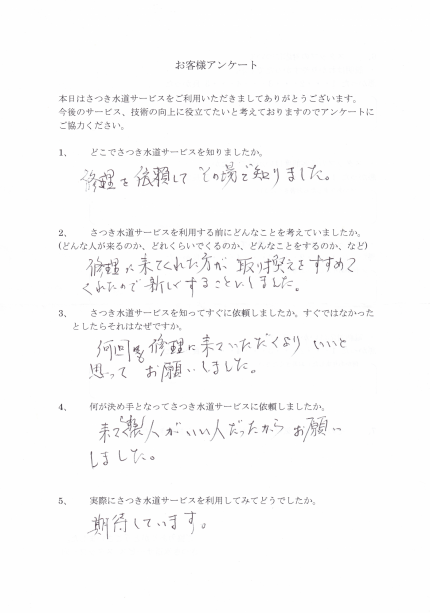 お客様アンケート
本日はさつき水道サービスをご利用いただきましてありがとうございます。
今後のサービス、技術の向上に役立てたいと考えておりますのでアンケートに
ご協力ください。
1、 どこでさつき水道サービスを知りましたか。
修理を依頼して その場で知りました。
2、 さつき水道サービスを利用する前にどんなことを考えていましたか。
(どんな人が来るのか、どれくらいでくるのか、どんなことをするのか、など)
修理に来てくれた方が 取り換えをすすめて
くれたので新しくすることにしました。
3、 さつき水道サービスを知ってすぐに依頼しましたか。すぐではなかった
としたらそれはなぜですか。
何回も修理に来ていただくより いいと
思って お願いしました。
4、 何が決め手となってさつき水道サービスに依頼しましたか。
来て 人がいい人だったから お願い
しました。
5、 実際にさつき水道サービスを利用してみてどうでしたか。
期待しています。